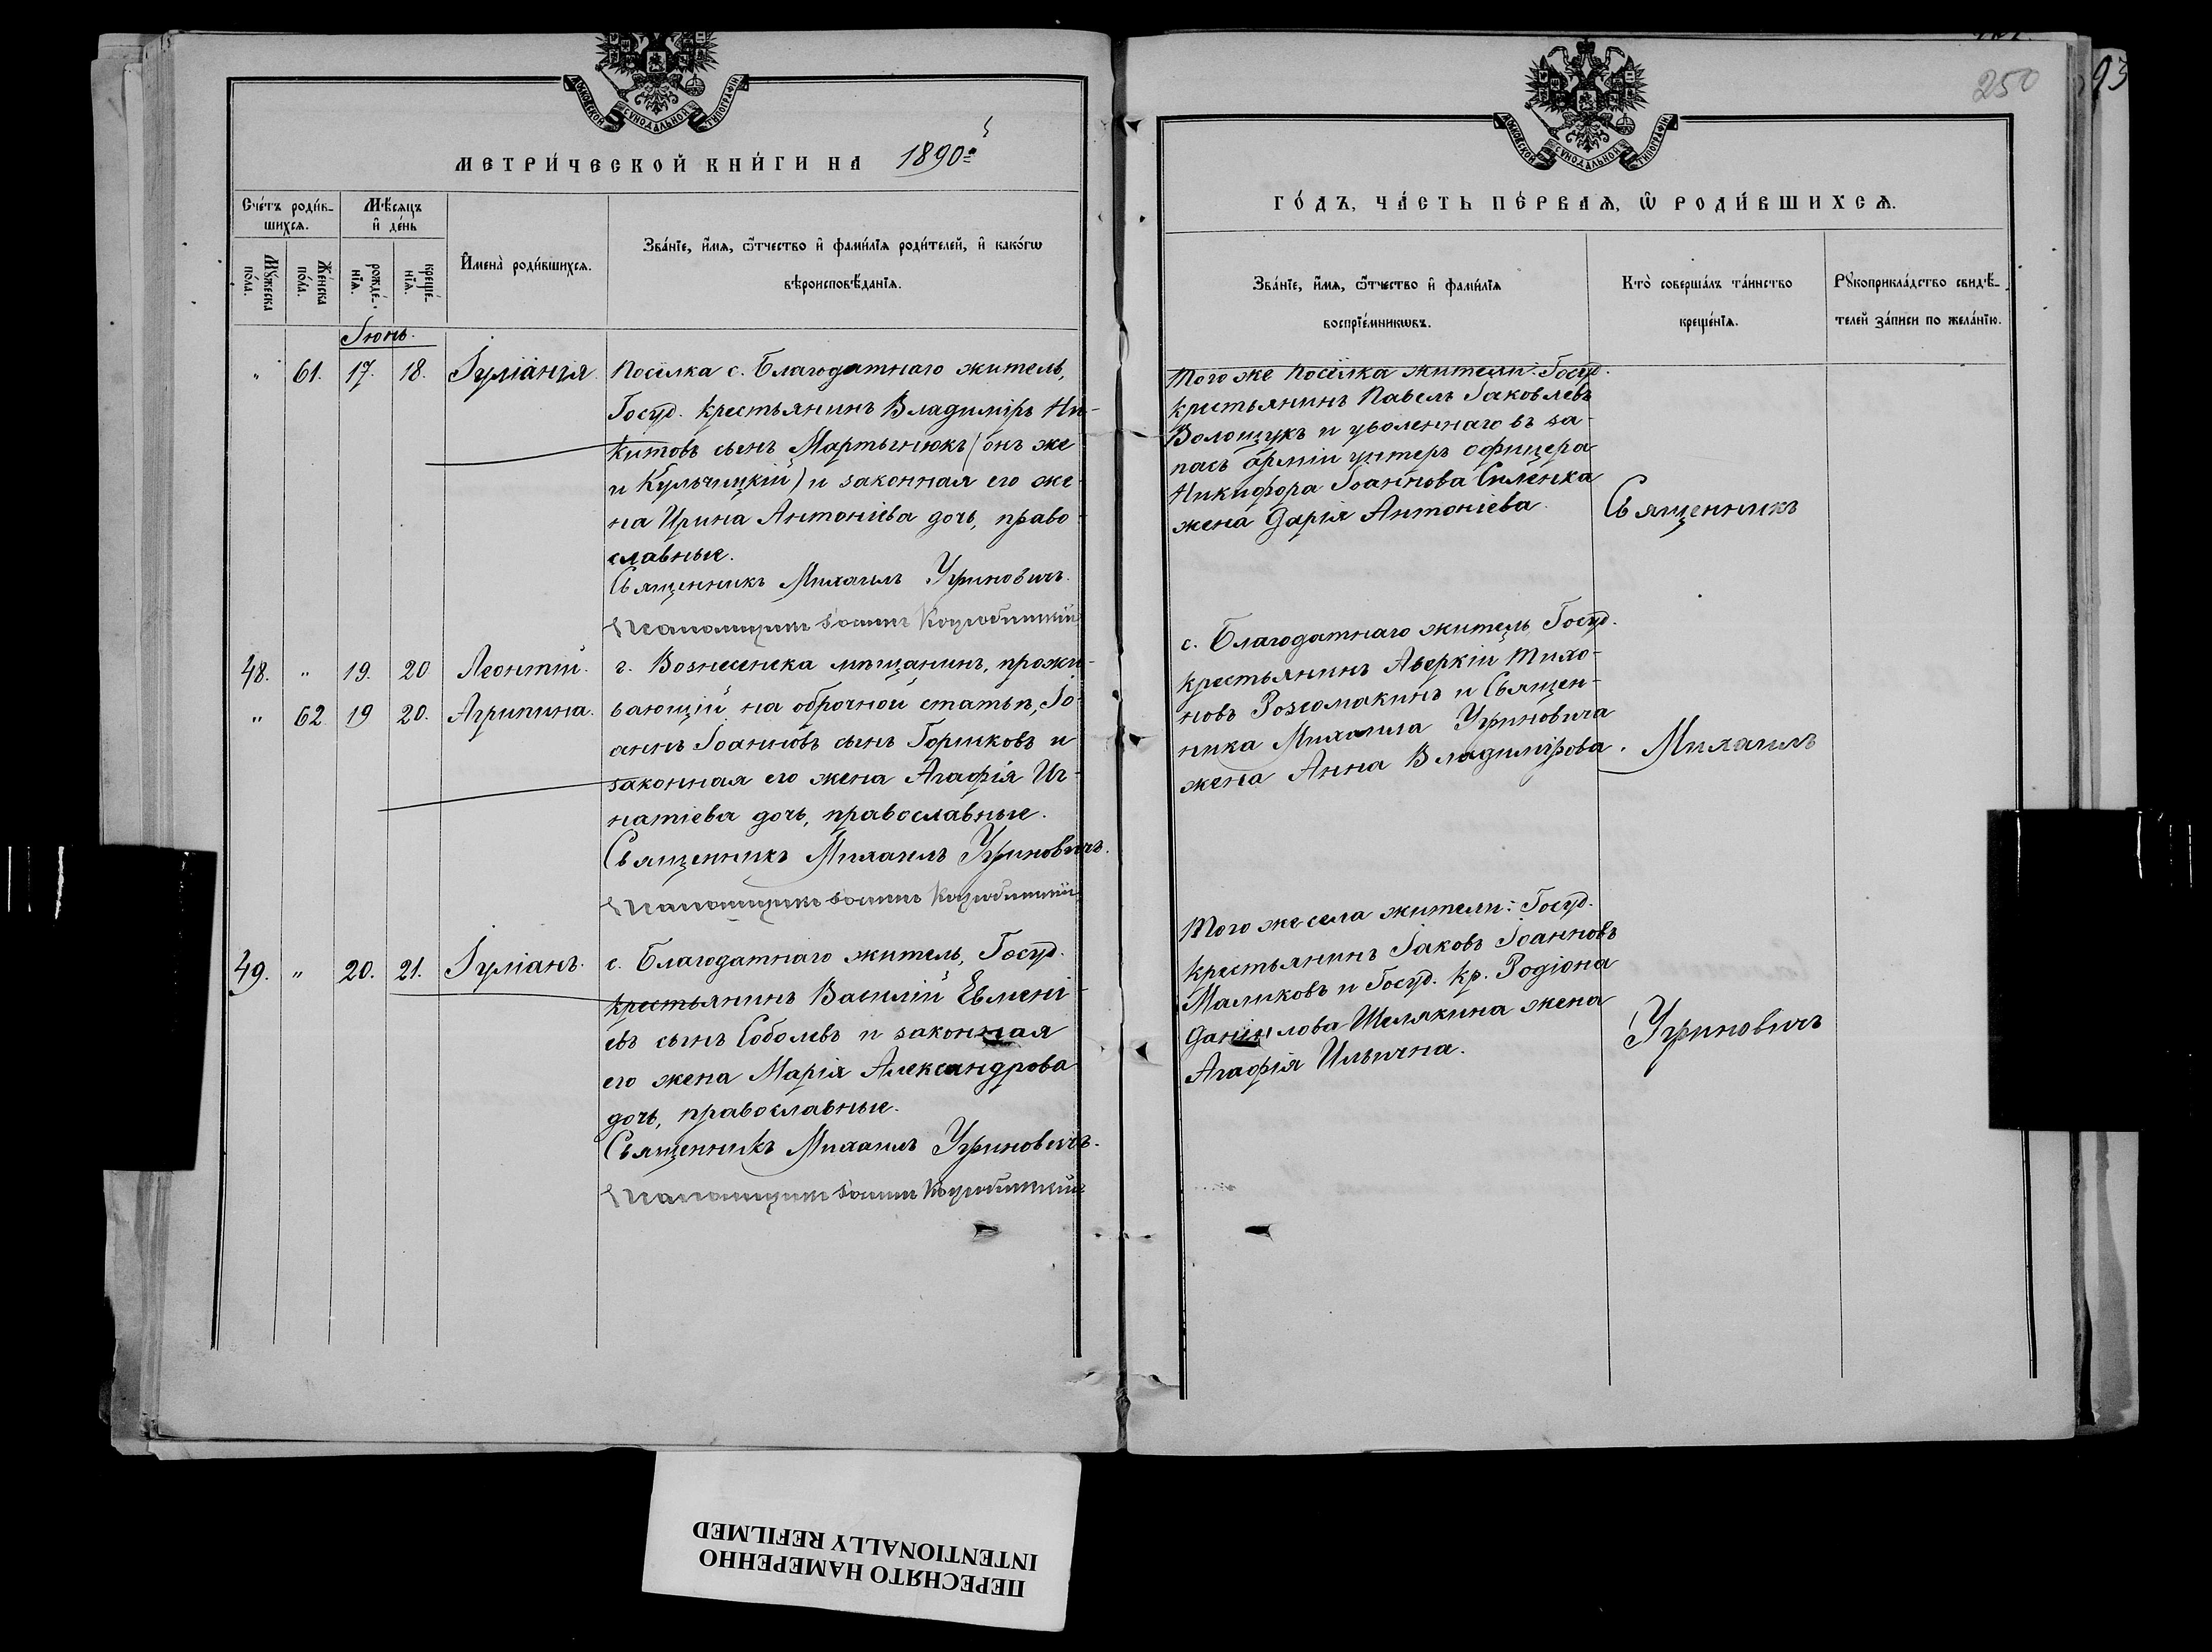 МОСКОВСКОЙ СѴНОДАЛЬНОЙ ТИПОГРАФІИ
МЕТРИ́ЧЕСКОЙ КНИ́ГИ НА 1890й
Сче́тъ роди́в-
шихсѧ.
Мѣ́сѧцъ
и҆ де́нь
Мꙋ́жеска
по́ла.
Же́нска
по́ла.
рожде́-
нїѧ.
креще́-
нїѧ.
И҆мена̀ роди́вшихсѧ.
Зва́нїе, и҆́мѧ, ѻ҆́тчество и҆ фами́лїѧ роди́телей, и҆ како́гѡ
вѣроисповѣ́данїѧ.
Іюнь.
" 61. 17. 18. Іуліанія. Посёлка с. Благодатнаго житель,
Госуд. крестьянинъ Владиміръ Ни-
китовъ сынъ Мартынюкъ (онъ же
и Кульчицкій) и законная его же-
на Ирина Антоніева дочь, право-
славные.
Священникъ Михаилъ Угриновичъ.
Псаломщикъ Іоаннъ
48. " 19. 20 Леонтій. г. Вознесенска мѣщанинъ, прожи-
" 62 19 20. Агрипина. вающій на оброчной статьѣ, Іо-
аннъ Іоанновъ сынъ Горшковъ и
законная его жена Агафія Иг-
натіева дочь, православные.
Священникъ Михаилъ Угриновичъ.
Псаломщикъ Іоаннъ
49. " 20. 21. Іуліанъ. с. Благодатнаго житель, Госуд.
крестьянинъ Василій Евмені-
евъ сынъ Соболевъ и законная
его жена Марія Александрова
дочь, православные.
Священникъ Михаилъ Угриновичъ.
Псаломщикъ Іоаннъ
250
93
МОСКОВСКОЙ СѴНОДАЛЬНОЙ ТИПОГРАФІИ
ГО́ДЪ, ЧА́СТЬ ПЕ́РВАѦ, Ѡ҆ РОДИ́ВШИХСѦ.
Зва́нїе, и҆́мѧ, ѻ҆́тчество и҆ фами́лїѧ
воспрїе́мникѡвъ.
Кто̀ соверша́лъ та́инство
креще́нїѧ.
Рꙋкоприкла́дство свидѣ́-
телей за́писи по жела́нїю.
Того же посёлка жители: Госуд.
крестьянинъ Павелъ Іаковлевъ
Волощукъ и уволеннаго въ за-
пасъ арміи унтеръ офицера
Никифора Іоаннова Силенка
жена Дарія Антоніева.
Священникъ
с. Благодатнаго житель, Госуд.
крестьянинъ Аверкій Тихо-
новъ Розсомакинъ и Священ-
ника Михаила Угриновича
жена Анна Владимірова.
Михаилъ
Того же села жители: Госуд.
крестьянинъ Іаковъ Іоанновъ
Маликовъ и Госуд. кр. Родіона
Данилова Шелякина жена
Агафія Ильична.
Угриновичъ
ПЕРЕСНЯТО НАМЕРЕННО
INTENTIONALLY REFILMED